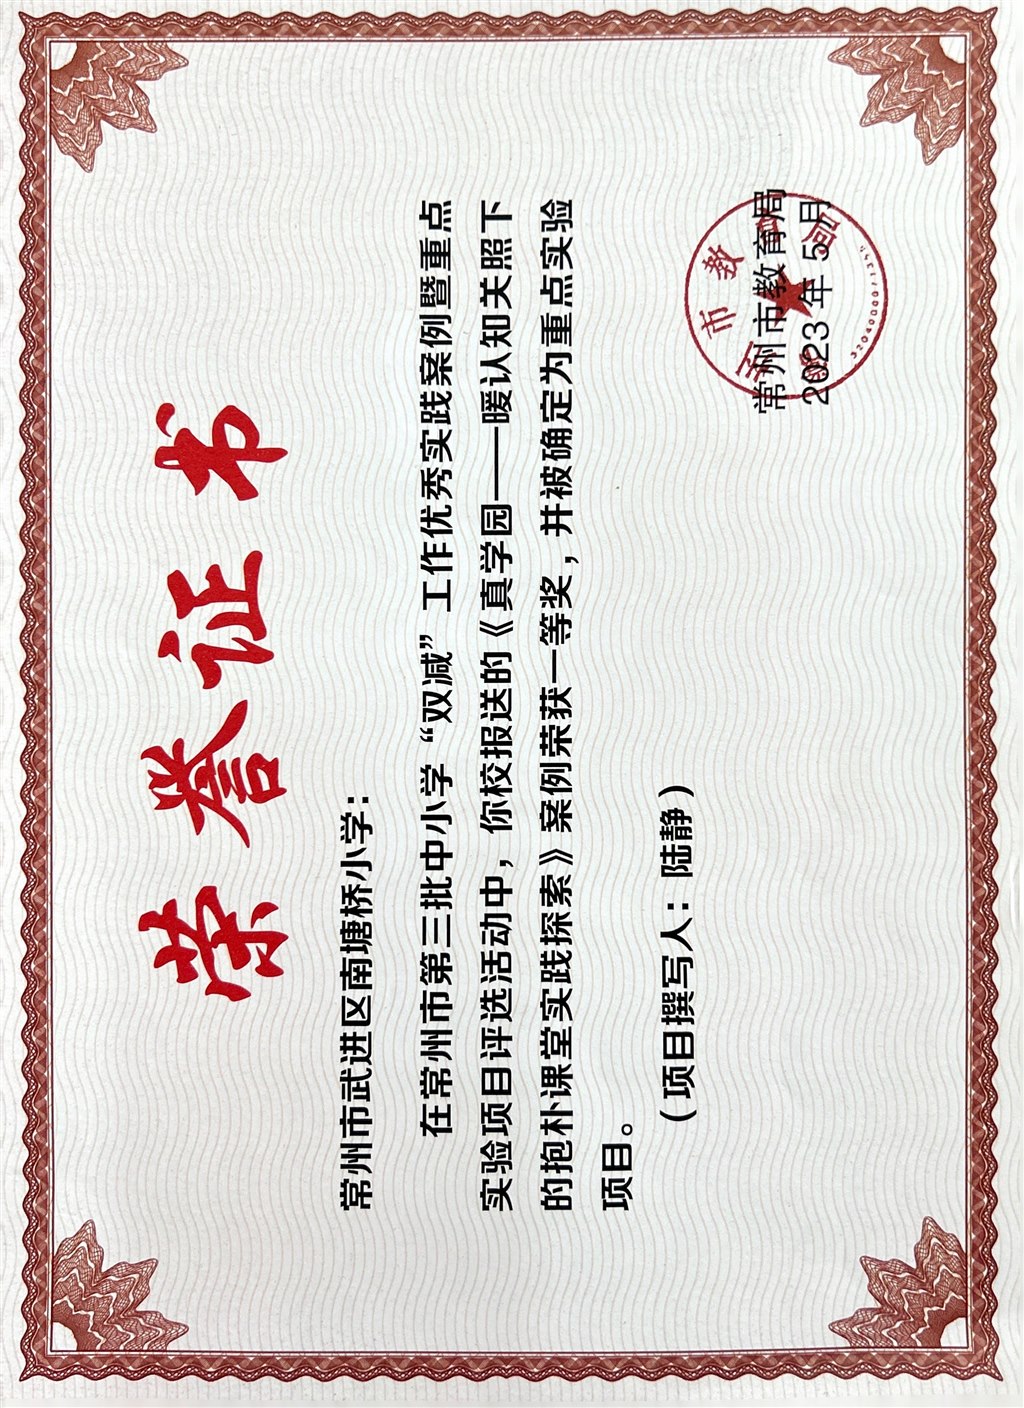 荣誉证书
常州市武进区南塘桥小学：
在常州市第三批中小学“双减”工作优秀实践案例暨重点
实验项目评选活动中，你校报送的《真学园——暖认知关照下
的抱朴课堂实践探索》案例荣获一等奖，并被确定为重点实验
项目。
（项目撰写人：陆静）
常州市教育局
2023年5月
常州市教育局